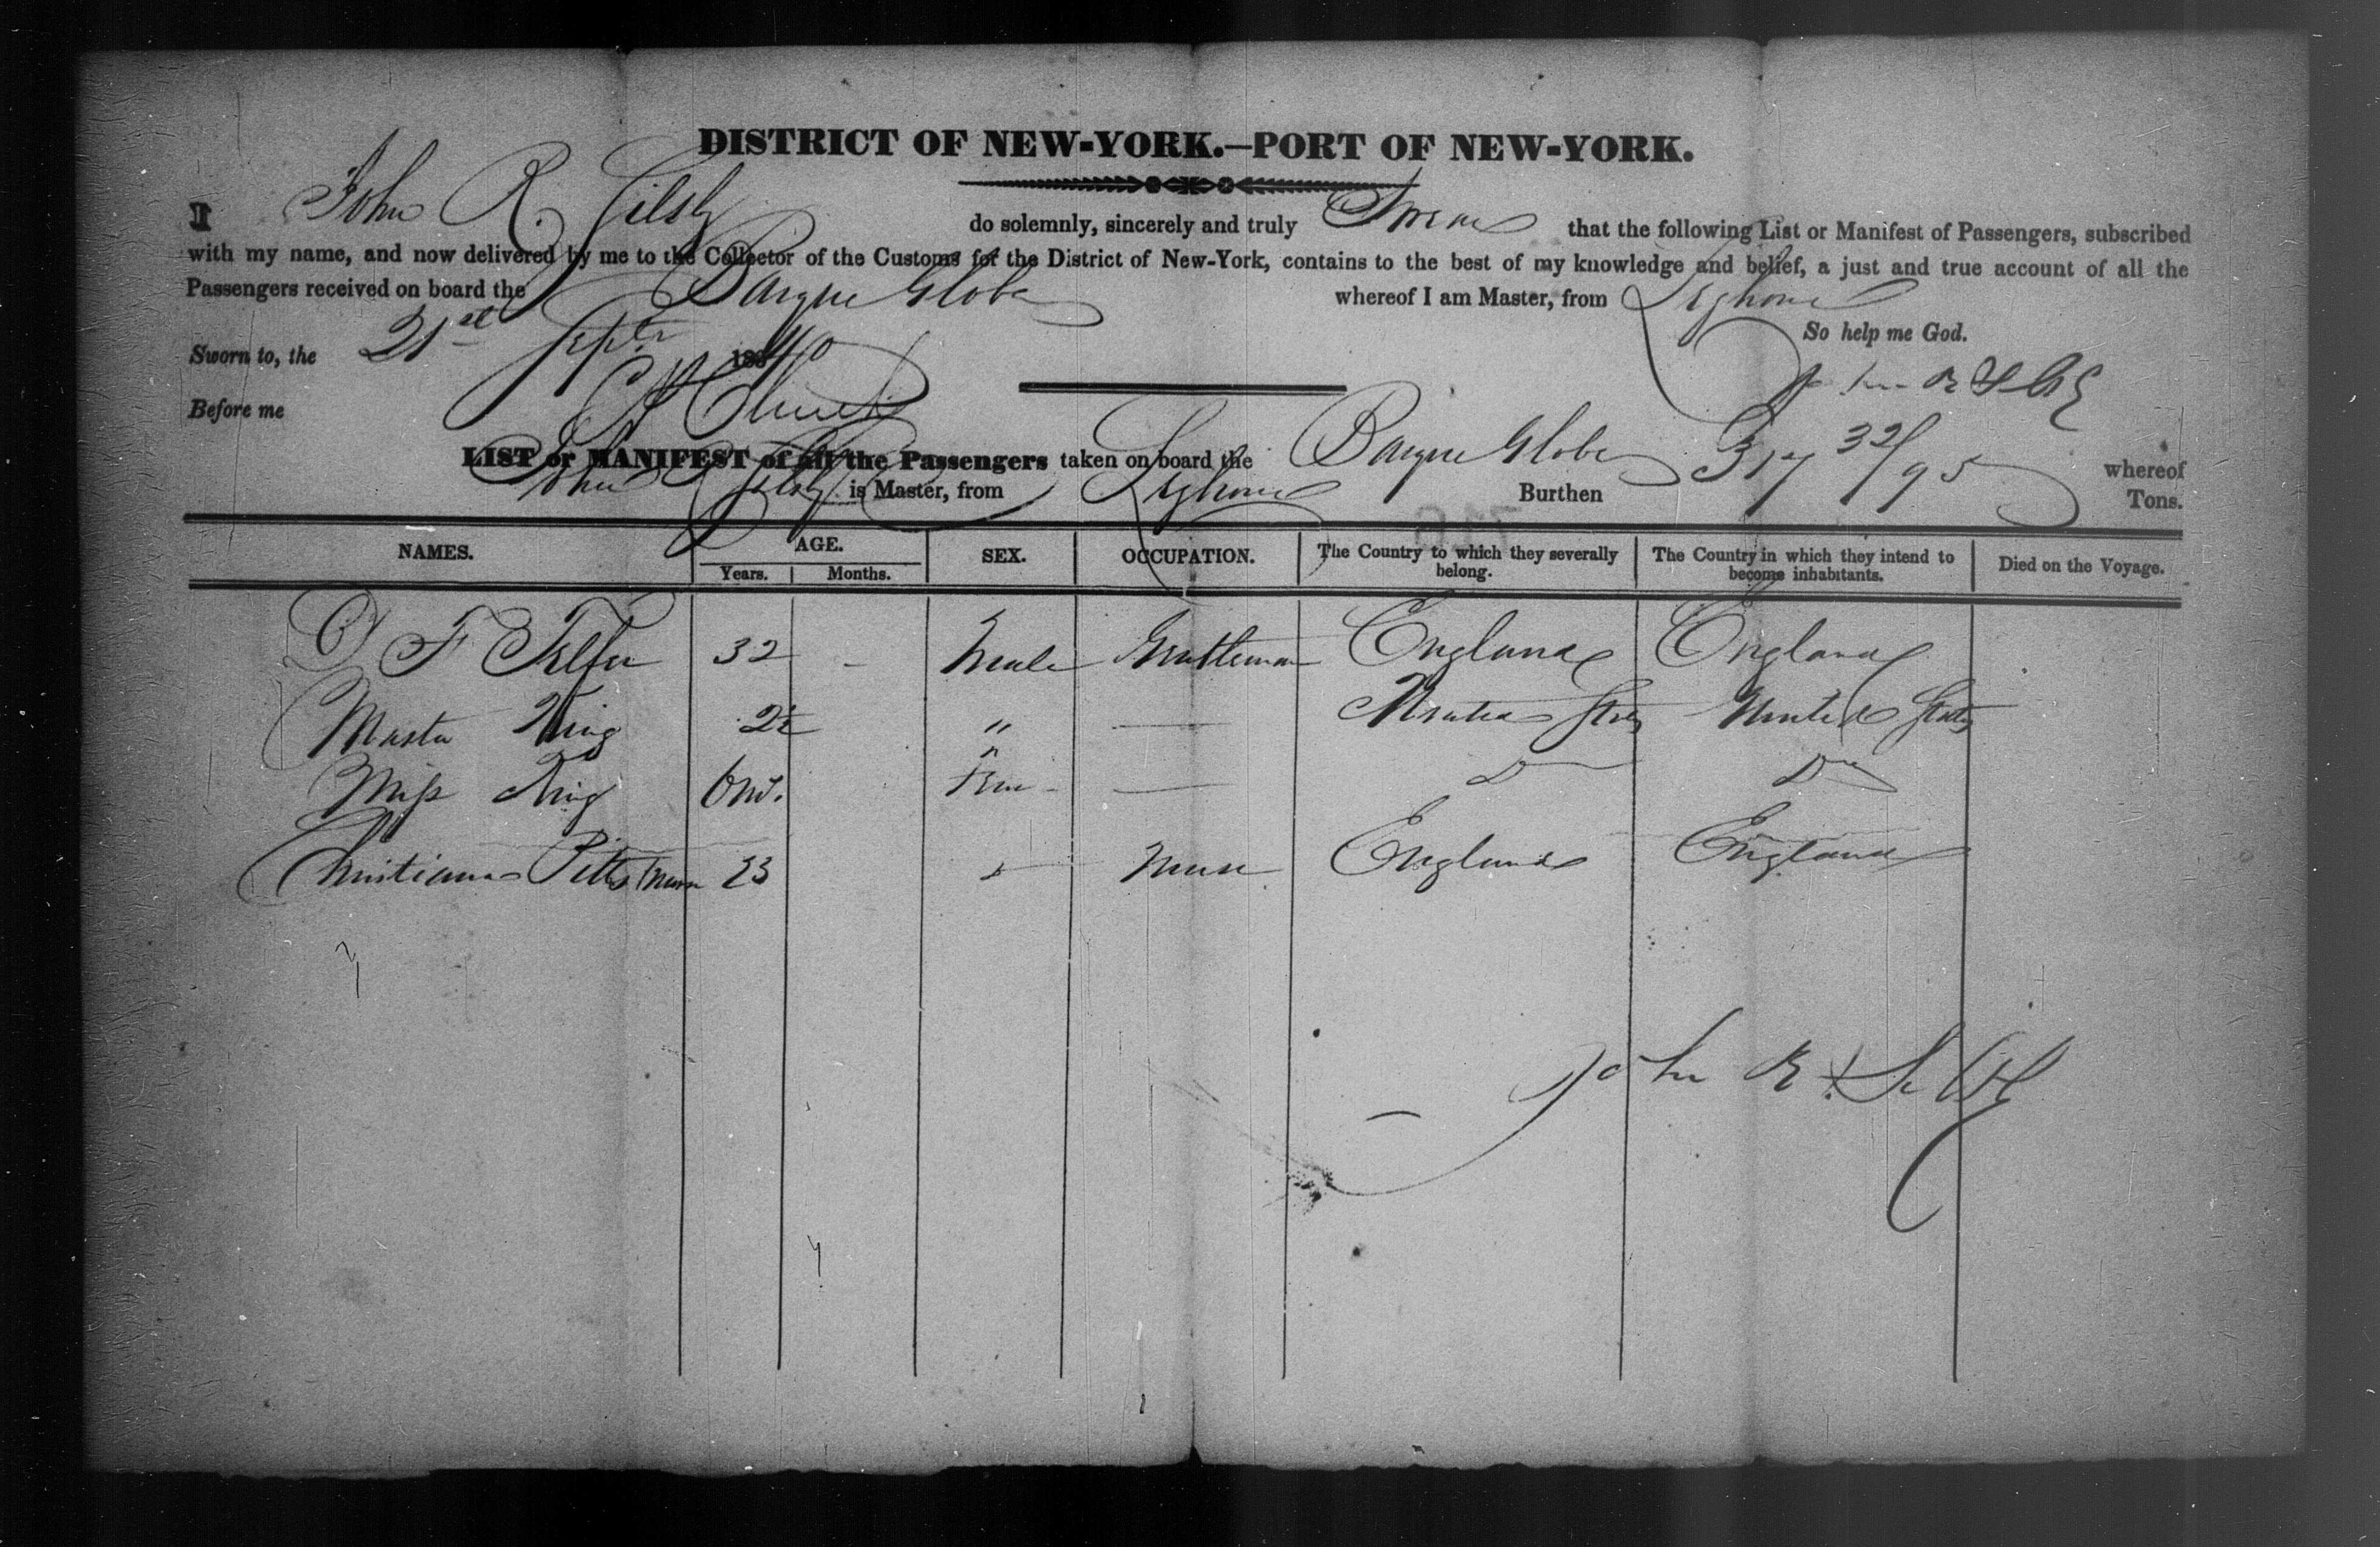 DISTRICT OF NEW-YORK.—PORT OF NEW-YORK.
I John R. Gilsby do solemnly, sincerely and truly Swear that the following List or Manifest of Passengers, subscribed
with my name, and now delivered by me to the Collector of the Customs for the District of New-York, contains to the best of my knowledge and belief, a just and true account of all the
Passengers received on board the Barque Globe whereof I am Master, from Leghorn
So help me God.
Sworn to, the 21st Septr 1840
Before me
LIST or MANIFEST of all the Passengers taken on board the Barque Globe 317 32/95 whereof
John R Gilsby is Master, from Leghorn Burthen Tons.
NAMES. AGE. SEX. OCCUPATION. The Country to which they severally belong. The Country in which they intend to become inhabitants. Died on the Voyage.
Years. Months.
F Telfer 32 - Male Gentleman England England
Master King 2½ " — United States United States
Miss King 6 m. Fem — Do Do
Christiana Pitts 23 " Nurse England England
John R.